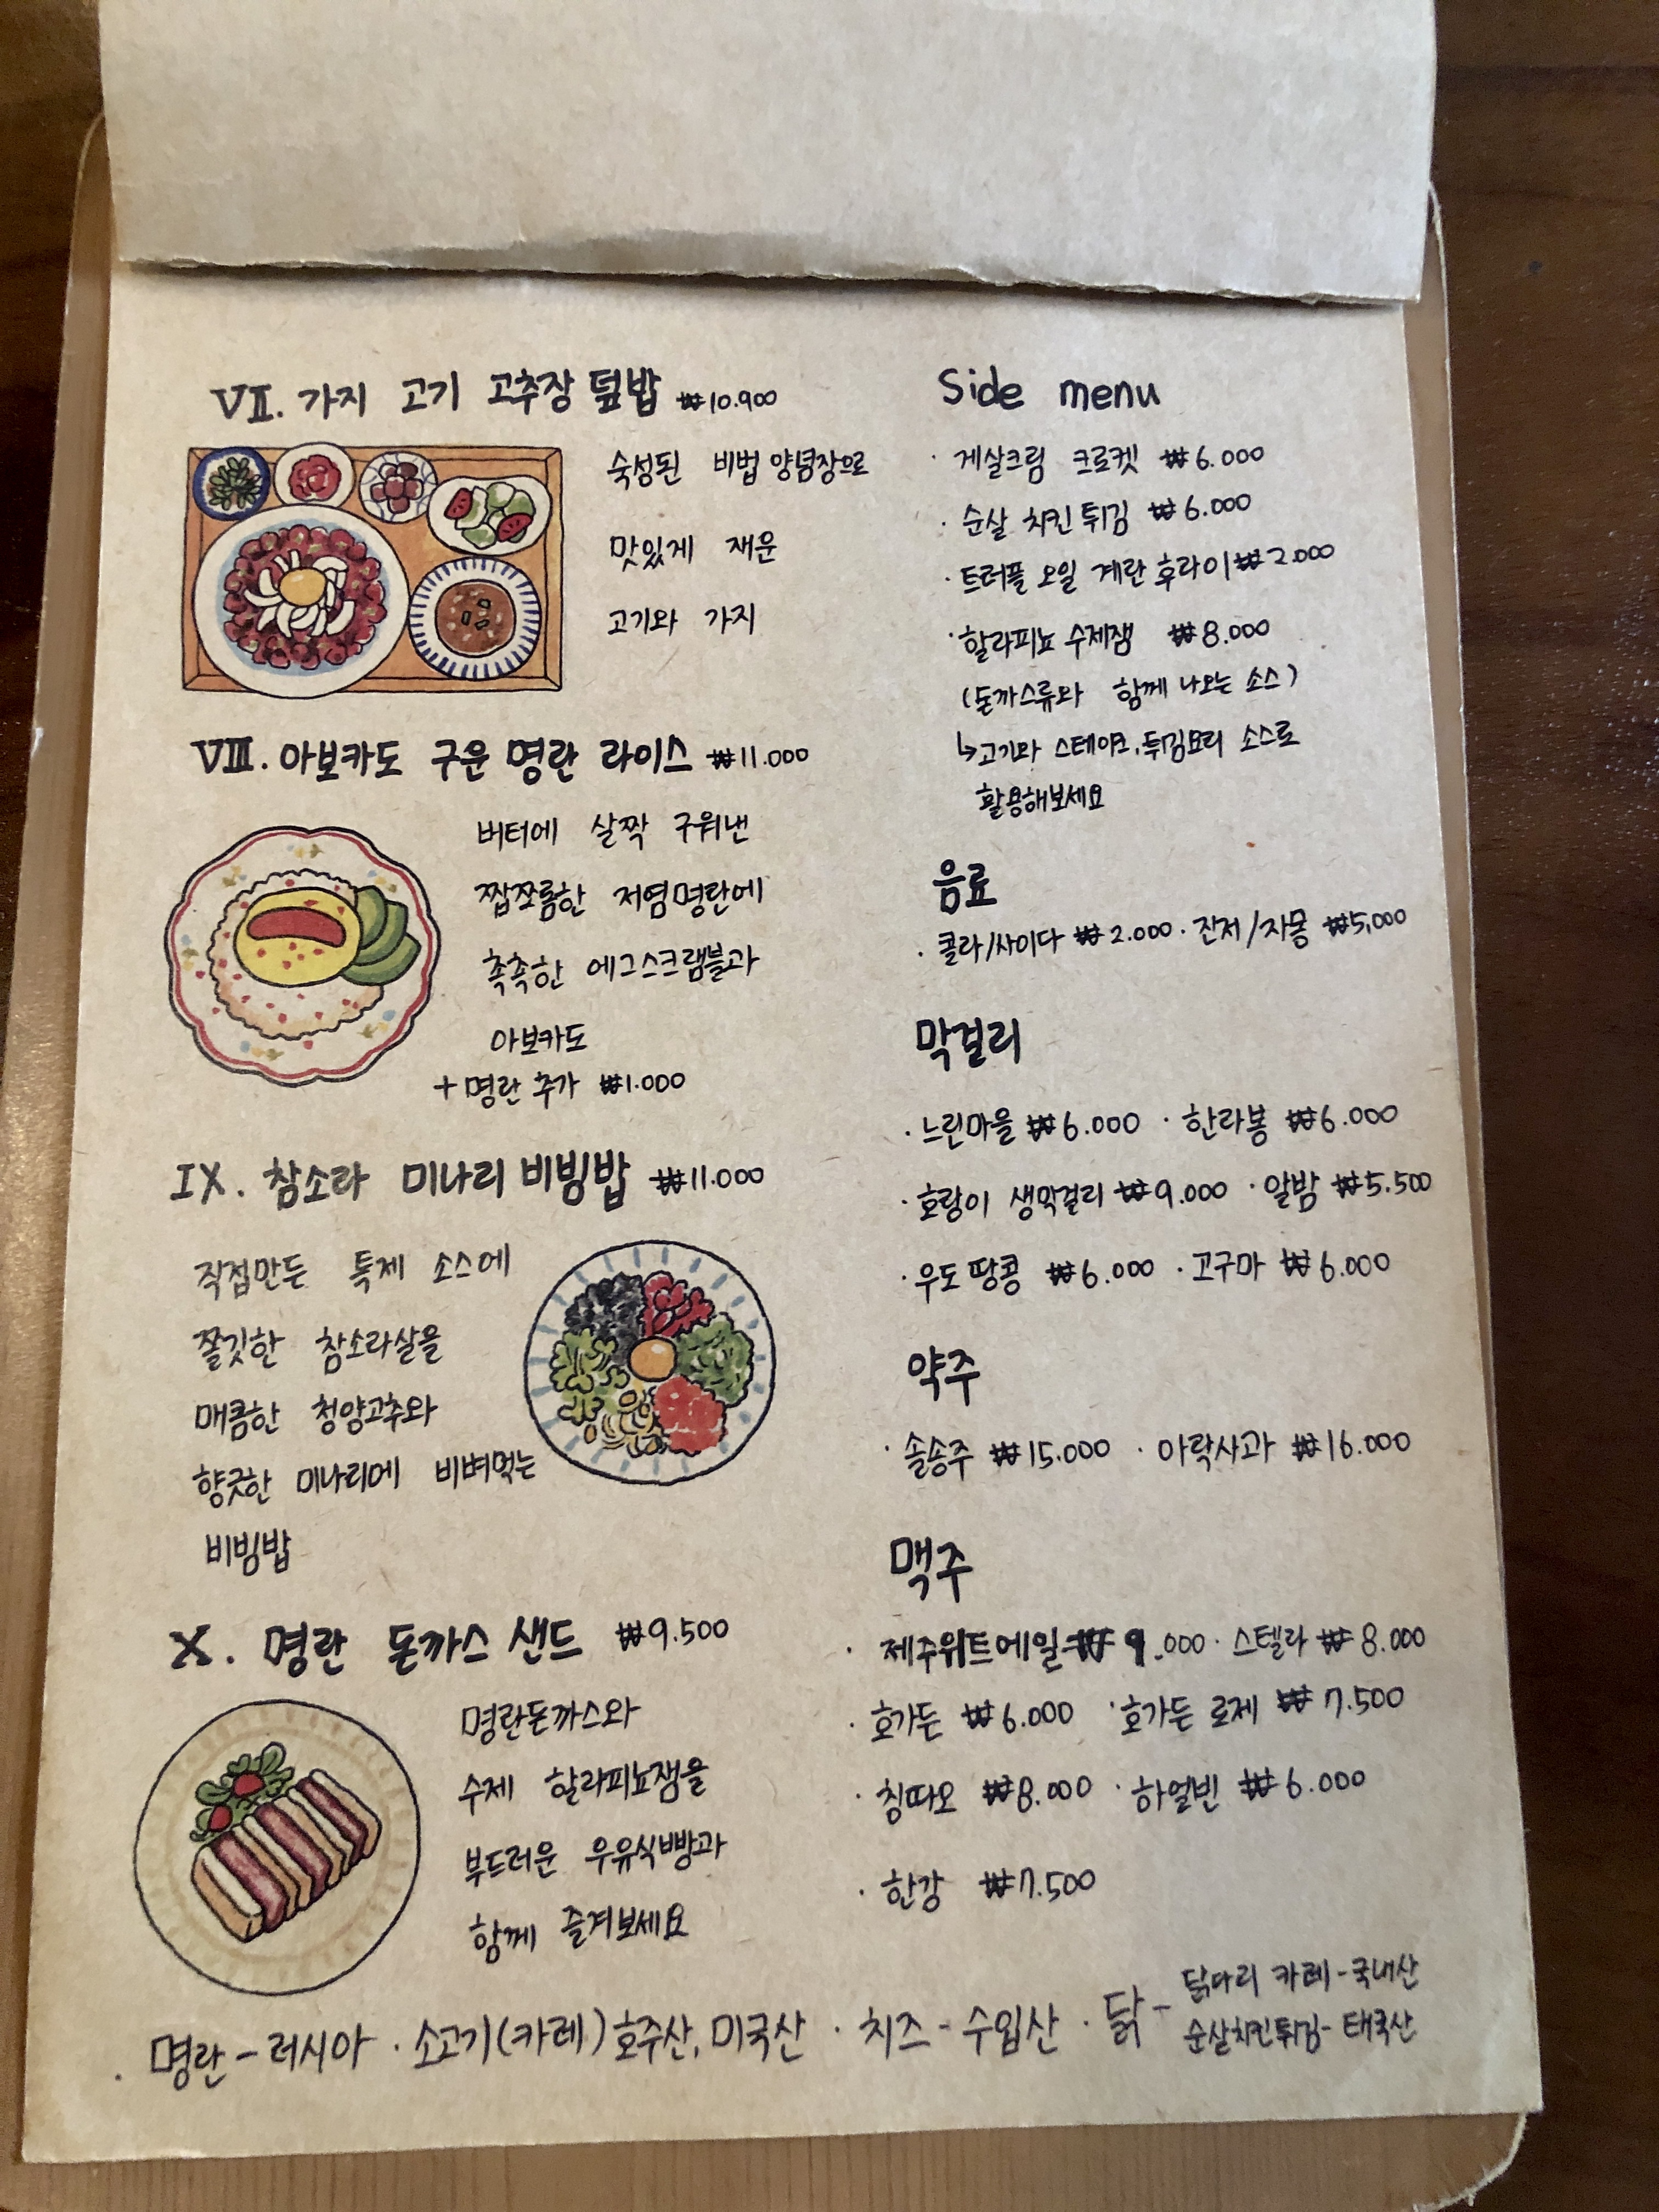 VII. 가지 고기 고추장 덮밥 ₩10.900
숙성된 비법 양념장으로
맛있게 재운
고기와 가지
VIII. 아보카도 구운 명란 라이스 ₩11.000
버터에 살짝 구워낸
짭쪼롬한 저염명란에
촉촉한 에그스크램블과
아보카도
+ 명란 추가 ₩1.000
IX. 참소라 미나리 비빔밥 ₩11.000
직접만든 특제 소스에
쫄깃한 참소라살을
매콤한 청양고추와
향긋한 미나리에 비벼먹는
비빔밥
X. 명란 돈까스 샌드 ₩9.500
명란돈까스와
수제 할라피뇨잼을
부드러운 우유식빵과
함께 즐겨보세요
Side menu
· 게살크림 크로켓 ₩6.000
· 순살 치킨 튀김 ₩6.000
· 트러플 오일 계란 후라이 ₩2.000
· 할라피뇨 수제잼 ₩8.000
(돈까스류와 함께 나오는 소스)
↳고기와 스테이크, 튀김요리 소스로
활용해보세요
음료
· 콜라/사이다 ₩2.000 · 잔저/자몽 ₩5,000
막걸리
· 느린마을 ₩6.000 · 한라봉 ₩6.000
· 호랑이 생막걸리 ₩9.000 · 알밤 ₩5.500
· 우도 땅콩 ₩6.000 · 고구마 ₩6.000
약주
· 솔송주 ₩15.000 · 아락사과 ₩16.000
맥주
· 제주위트에일 ₩9.000 · 스텔라 ₩8.000
· 호가든 ₩6.000 · 호가든 로제 ₩7.500
· 칭따오 ₩8.000 · 하얼빈 ₩6.000
· 한강 ₩7.500
· 명란 - 러시아 · 소고기(카레) 호주산, 미국산 · 치즈 - 수입산 · 닭 - 닭다리 카레 - 국내산
순살치킨튀김 - 태국산